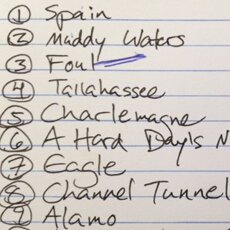 1 Spain
2 Muddy Waters
3 Four
4 Tallahassee
5 Charlemagne
6 A Hard Day's N
7 Eagle
8 Channel Tunnel
9 Alamo